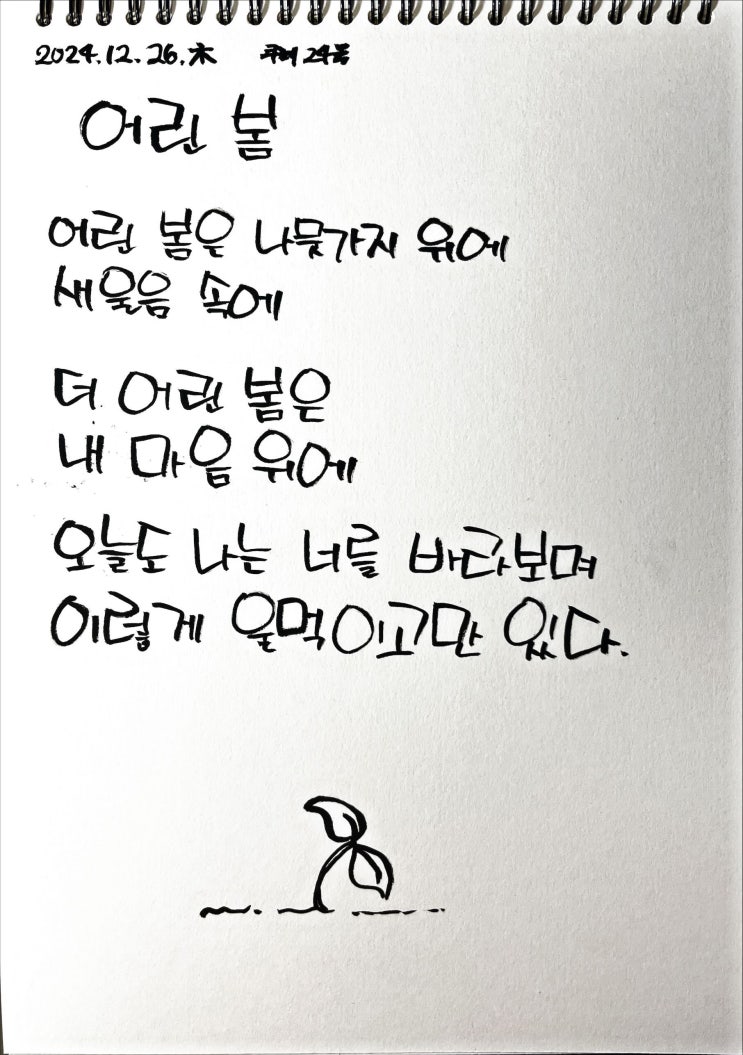 2024.12.26.木
어린 봄
어린 봄은 나뭇가지 위에
새울음 속에
더 어린 봄은
내 마음 위에
오늘도 나는 너를 바라보며
이렇게 울먹이고만 있다.